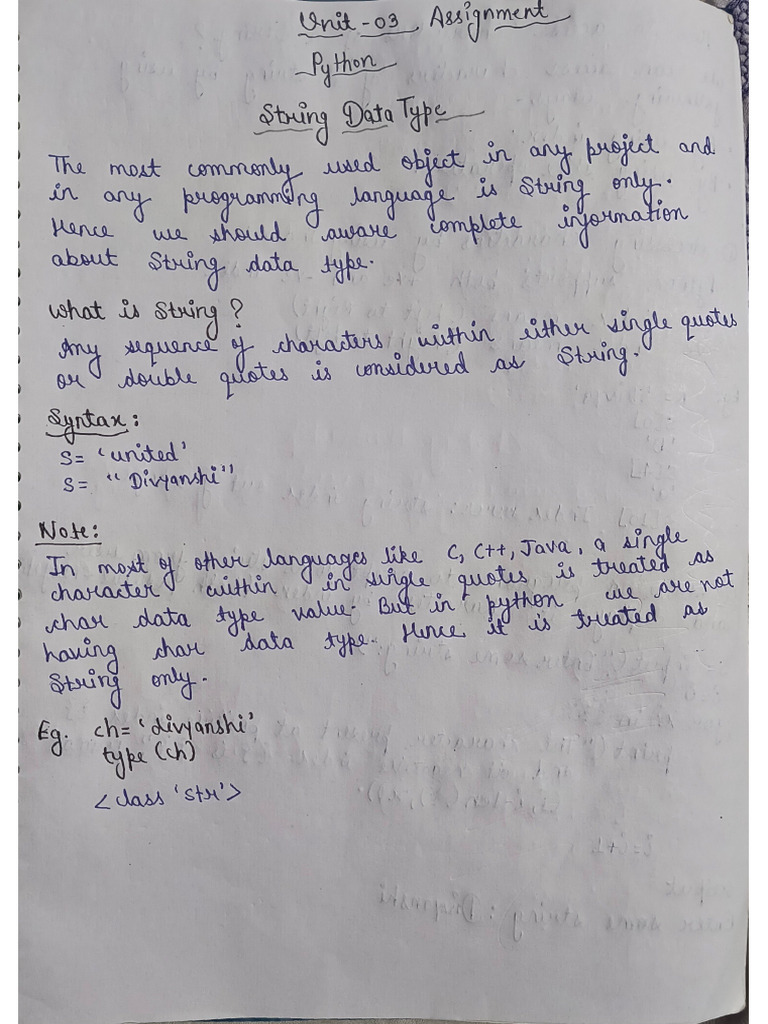 Unit - 03 Assignment
Python
String Data Type
The most commonly used object in any project and
in any programming language is String only.
Hence we should aware complete information
about String data type.
What is String?
Any sequence of characters within either single quotes
or double quotes is considered as String.
Syntax:
S= 'united'
S= "Divyanshi"
Note:
In most of other languages like C, C++, Java, a single
character within in single quotes is treated as
char data type value. But in python we are not
having char data type. Hence it is treated as
String only.
Eg. ch= 'divyanshi'
type (ch)
<class 'str'>